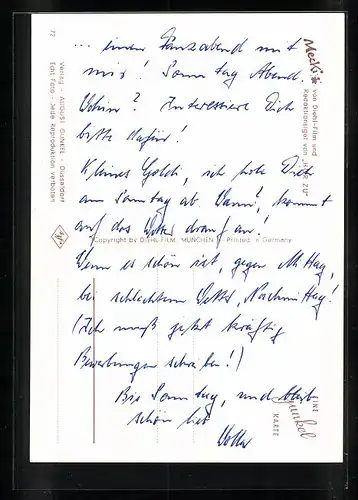 ... einen Tanzabend mit
mir! Sonntag Abend.
Wohin? Interessiere Dich
bitte dafür!
Kleines Goldi, ich hole Dich
am Sonntag ab. Wann?, kommt
auf das Wetter drauf an!
Wenn es schön ist, gegen Mittag,
bei schlechtem Wetter, Nachmittag!
(Ich muß jetzt kräftig
Bewerbungen schreiben!)
Bis Sonntag, und bleib
schön lieb
Mecki
von Diehl-Film und
Redaktionsigel von „HÖR ZU“
Copyright by DIEHL-FILM, MÜNCHEN Printed in Germany
EINE
Gunkel
KARTE
72
Verlag · AUGUST GUNKEL · Düsseldorf
Echt Foto · Jede Reproduktion verboten